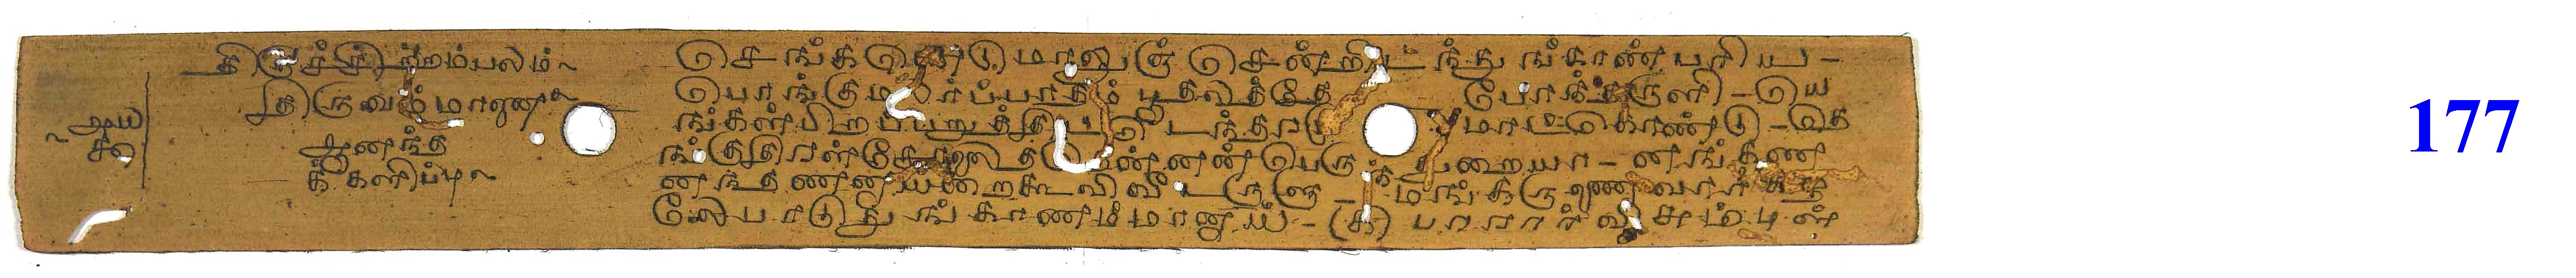 திருச்சிற்றம்பலம்
திருவம்மானை
ஆனந்த
க்களிப்பு
செங்க ணெடுமாலுஞ் சென்றிடந்துங்காண்பரிய -
பொங்குமலர்ப்பாதம் பூதலத்தே போந்தருளி - யெ
ங்கள்பிறப்பறுத்திட் டெந்தர மாட்கொண்டு - தெ
ங்குதிரள்சோலைத் தென்னன்பெருந்துறையா - னங்கண
னந்தணனயறைகூவி வீடருளு - மங்கருணைவார்கழ
லேபாடுதுங்காணம்மானாய் - (க) பாரார்விசும்புள்
177